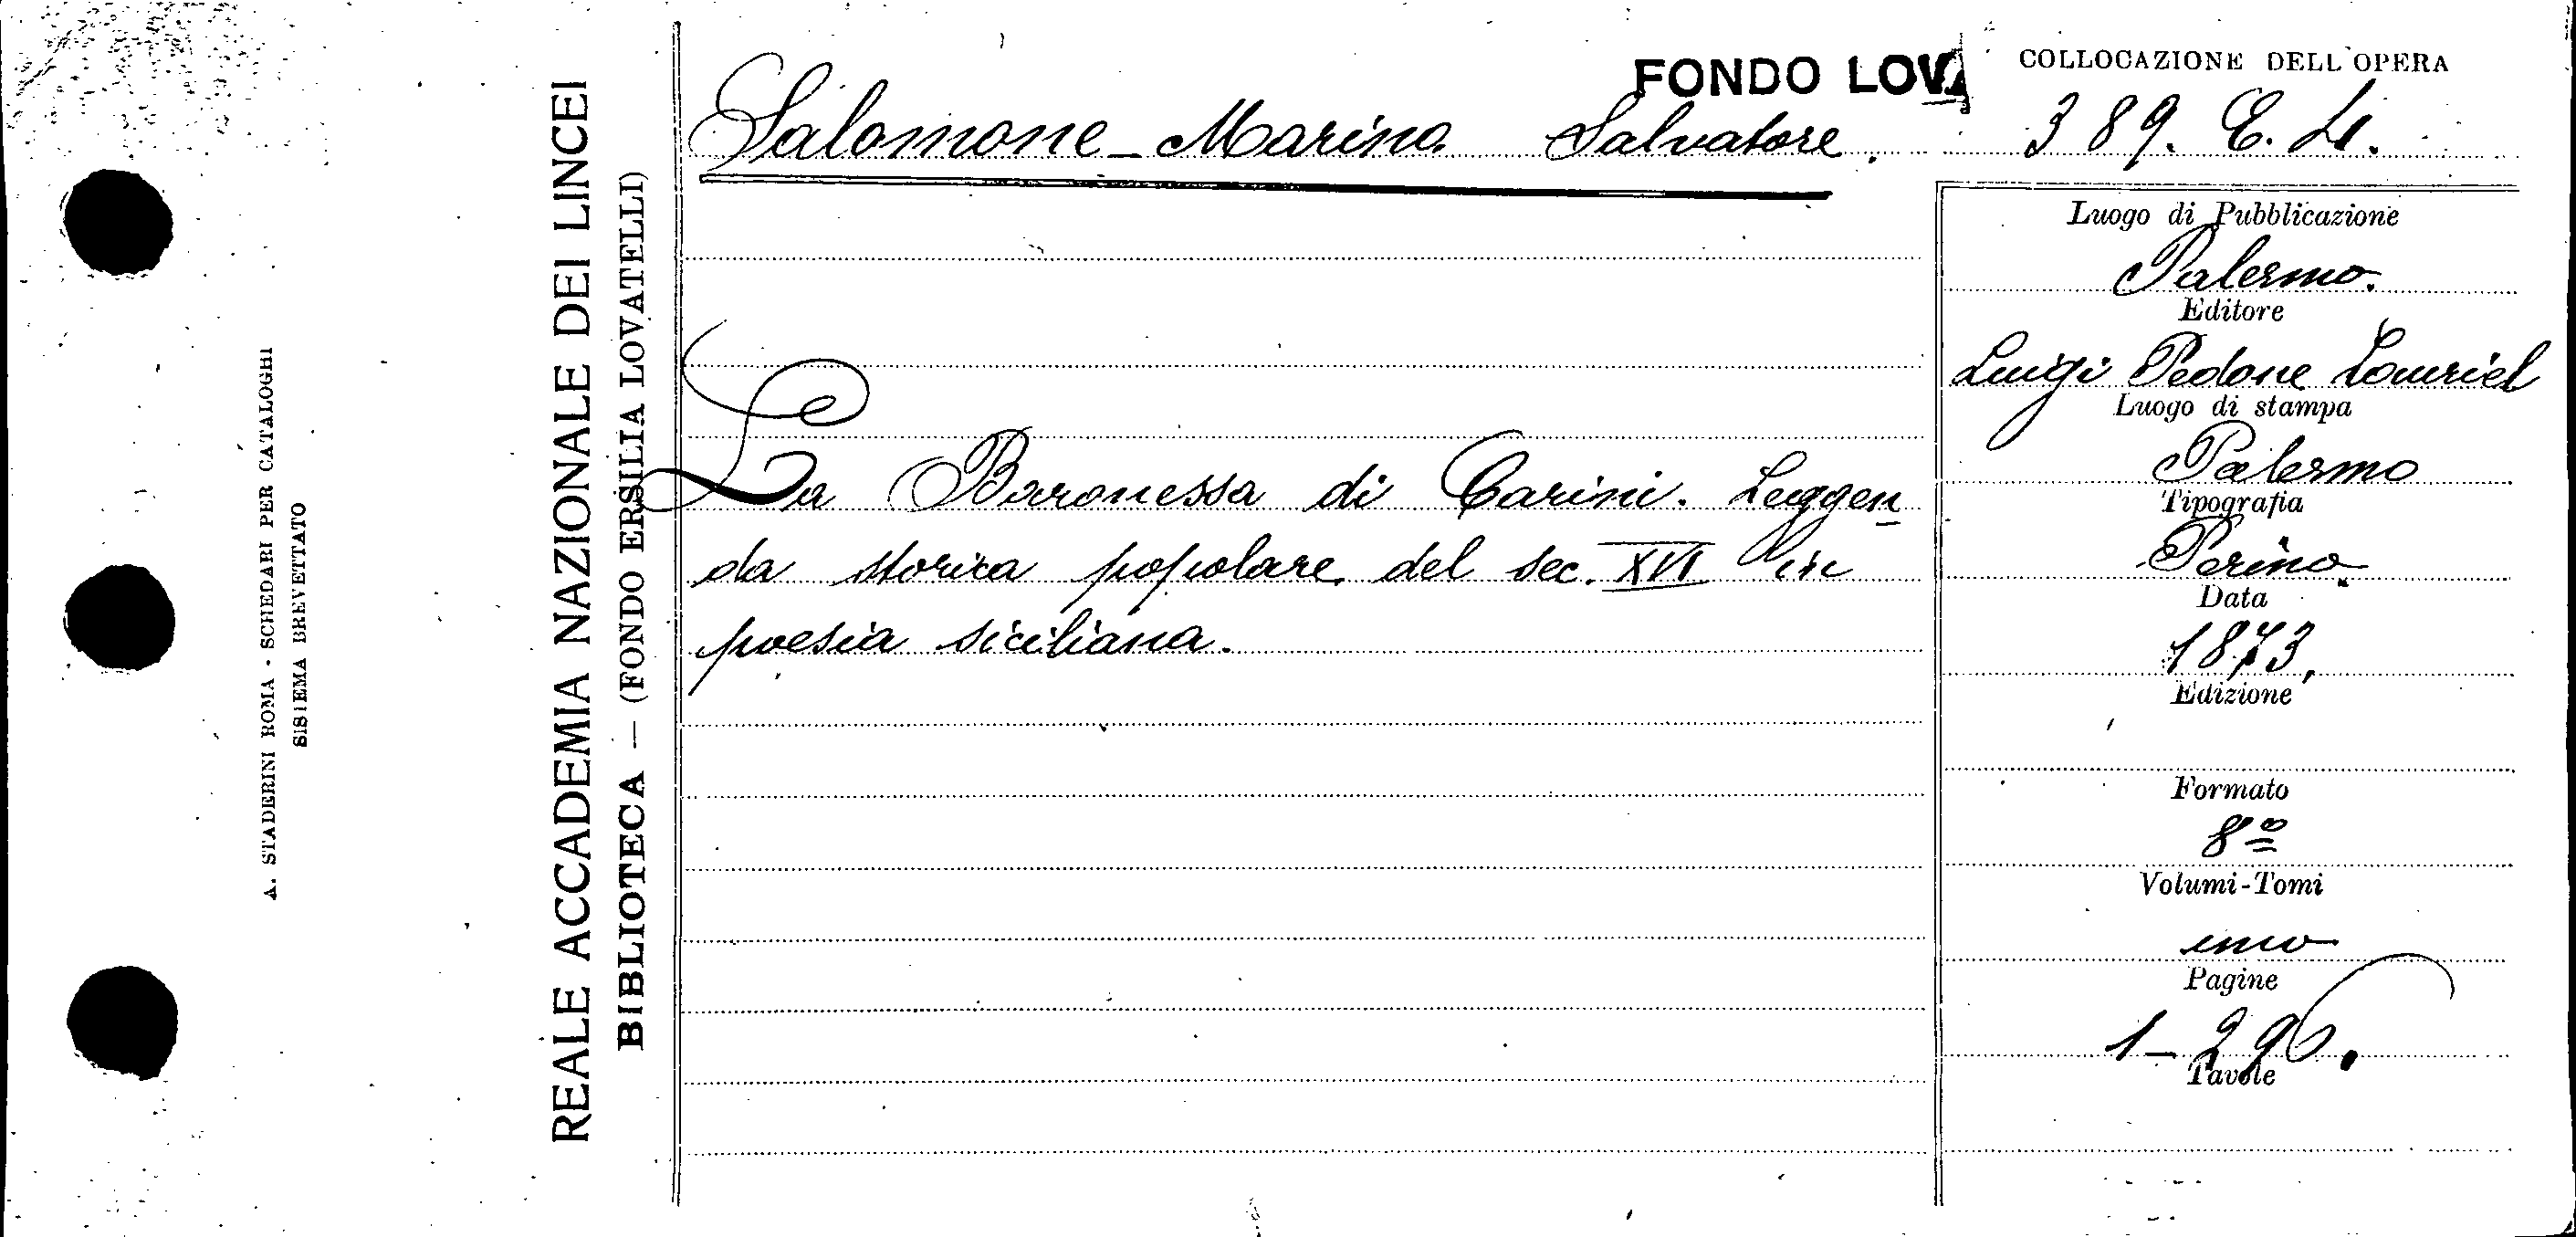 A. STADERINI ROMA - SCHEDARI PER CATALOGHI
SISTEMA BREVETTATO
REALE ACCADEMIA NAZIONALE DEI LINCEI
BIBLIOTECA — (FONDO ERSILIA LOVATELLI)
FONDO LOVA
Salomone-Marino Salvatore.
La Baronessa di Carini. Leggen
da storica popolare del sec. XVI in
poesia siciliana.
COLLOCAZIONE DELL'OPERA
389. C. 4.
Luogo di Pubblicazione
Palermo.
Editore
Luigi Pedone Lauriel
Luogo di stampa
Palermo
Tipografia
Perino
Data
1873,
Edizione
Formato
8º
Volumi-Tomi
uno
Pagine
1-296.
Tavole